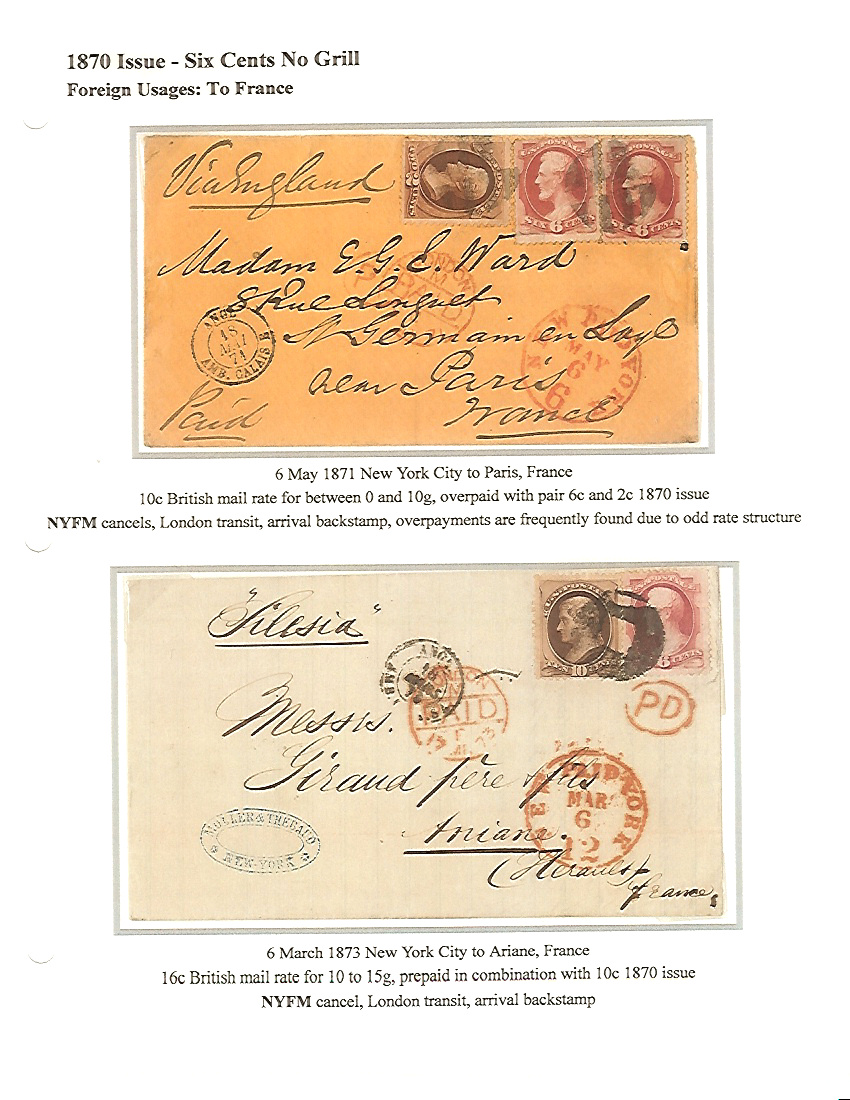 1870 Issue - Six Cents No Grill
Foreign Usages: To France
Via England
U.S. POSTAGE
SIX 6 CENTS
U.S. POSTAGE
SIX 6 CENTS
Madam E. G. E. Ward
LONDON
PAID
8 Rue Linguet
St Germain en Laye
ANGL.
18
MAI
71
AMB. CALAIS
NEW YORK
MAY
6
6
near Paris
Paid
France
6 May 1871 New York City to Paris, France
10c British mail rate for between 0 and 10g, overpaid with pair 6c and 2c 1870 issue
NYFM cancels, London transit, arrival backstamp, overpayments are frequently found due to odd rate structure
"Silesia"
10
6 CENTS
ANGL.
AMB.
LONDON
PAID
PD
Messrs.
Giraud père & fils
NEW YORK
MAR
6
12
Aniane.
MOLLER & THEBAUD
NEW-YORK
(Herault)
france
6 March 1873 New York City to Ariane, France
16c British mail rate for 10 to 15g, prepaid in combination with 10c 1870 issue
NYFM cancel, London transit, arrival backstamp